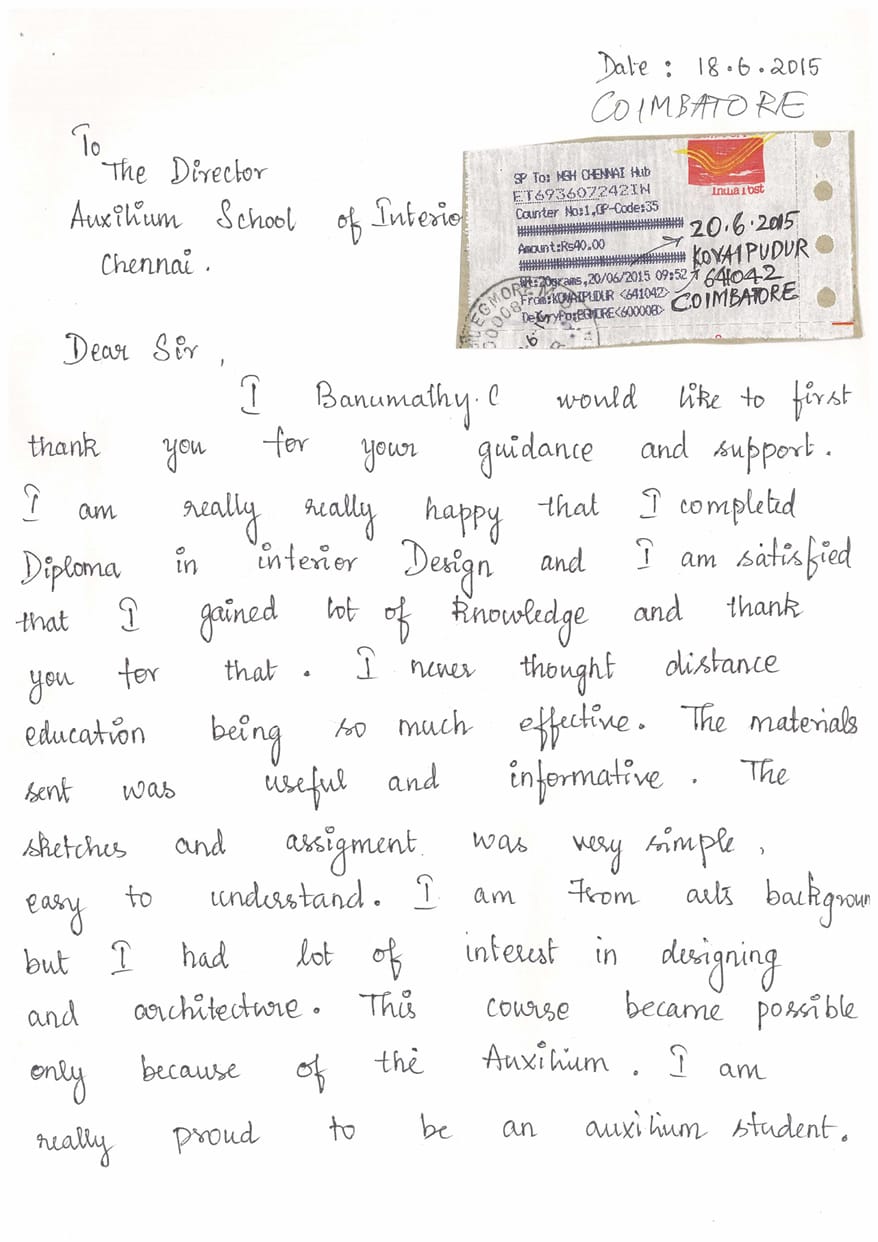 Date : 18.6.2015
COIMBATORE
To
The Director
Auxilium School of Interio
Chennai.
SP To: MSH CHENNAI Hub
ET693607242IN
Counter No:1,OP-Code:35
Amount:Rs40.00
Wt:20grams,20/06/2015 09:52
From:KOVAIPUDUR <641042>
EGMORE<600008>
India Post
20.6.2015
KOVAIPUDUR
641042
COIMBATORE
EGMORE
Dear Sir ,
I Banumathy.C would like to first
thank you for your guidance and support.
I am really really happy that I completed
Diploma in interior Design and I am satisfied
that I gained lot of knowledge and thank
you for that . I never thought distance
education being so much effective. The materials
sent was useful and informative . The
sketches and assigment was very simple ,
easy to understand. I am from arts backgroun
but I had lot of interest in designing
and architecture. This course became possible
only because of the Auxilium . I am
really proud to be an auxilium student.